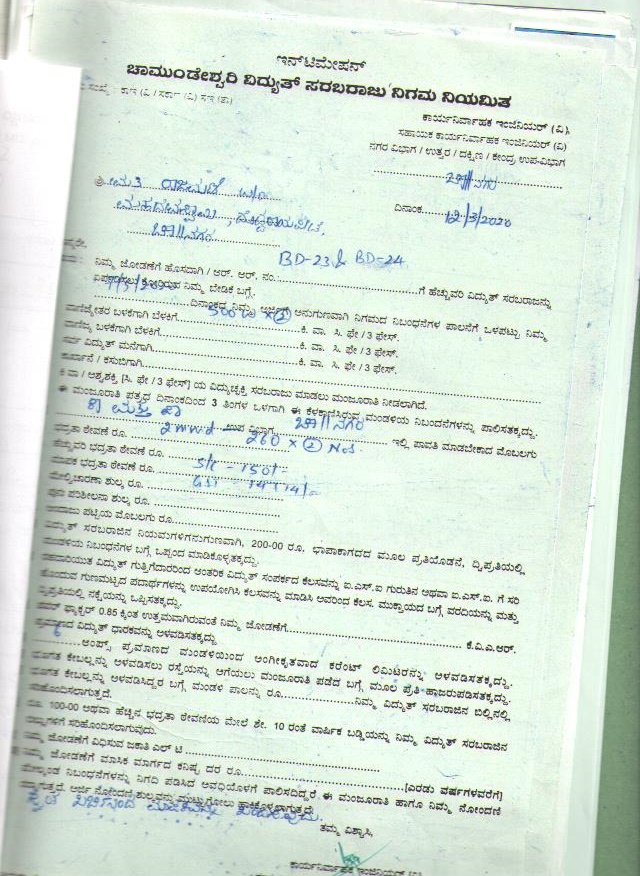 ಇನ್‌ಟಿಮೇಷನ್
ಚಾಮುಂಡೇಶ್ವರಿ ವಿದ್ಯುತ್ ಸರಬರಾಜು ನಿಗಮ ನಿಯಮಿತ
ಕಾರ್ಯನಿರ್ವಾಹಕ ಇಂಜಿನಿಯರ್ (ವಿ),
ಸಹಾಯಕ ಕಾರ್ಯನಿರ್ವಾಹಕ ಇಂಜಿನಿಯರ್ (ವಿ)
ನಗರ ವಿಭಾಗ / ಉತ್ತರ / ದಕ್ಷಿಣ / ಕೇಂದ್ರ ಉಪ-ವಿಭಾಗ
ಚಾ||ನಗರ
ದಿನಾಂಕ 12/3/2020
ಶ್ರೀಮತಿ ರಾಜಮಣಿ W/o
ಮಹದೇವಸ್ವಾಮಿ,
ಚಾ||ನಗರ
BD-23 & BD-24
ನಿಮ್ಮ ಜೋಡಣೆಗೆ ಹೊಸದಾಗಿ / ಆರ್. ಆರ್. ನಂ. ಗೆ ಹೆಚ್ಚುವರಿ ವಿದ್ಯುತ್ ಸರಬರಾಜನ್ನು
ನಿಮ್ಮ ಬೇಡಿಕೆ ಬಗ್ಗೆ.
ದಿನಾಂಕದ ನಿಮ್ಮ ಅರ್ಜಿಗೆ ಅನುಗುಣವಾಗಿ ನಿಗಮದ ನಿಬಂಧನೆಗಳ ಪಾಲನೆಗೆ ಒಳಪಟ್ಟು ನಿಮ್ಮ
ವಾಣಿಜ್ಯೇತರ ಬಳಕೆಗಾಗಿ ಬೆಳಕಿಗೆ 500 × 2 ಕಿ. ವಾ. ಸಿ. ಫೇ / 3 ಫೇಸ್.
ವಾಣಿಜ್ಯ ಬಳಕೆಗಾಗಿ ಬೆಳಕಿಗೆ ಕಿ. ವಾ. ಸಿ. ಫೇ / 3 ಫೇಸ್.
ಸರ್ವ ವಿದ್ಯುತ್ ಮನೆಗಾಗಿ ಕಿ. ವಾ. ಸಿ. ಫೇ / 3 ಫೇಸ್.
ಕಾರ್ಖಾನೆ / ಕಸುಬಿಗಾಗಿ
ಕಿ ವಾ / ಅಶ್ವಶಕ್ತಿ [ಸಿ. ಫೇ / 3 ಫೇಸ್] ಯ ವಿದ್ಯುಚ್ಛಕ್ತಿ ಸರಬರಾಜು ಮಾಡಲು ಮಂಜೂರಾತಿ ನೀಡಲಾಗಿದೆ.
ಈ ಮಂಜೂರಾತಿ ಪತ್ರದ ದಿನಾಂಕದಿಂದ 3 ತಿಂಗಳ ಒಳಗಾಗಿ ಈ ಕೆಳಕಾಣಿಸಿರುವ ಮಂಡಳಿಯ ನಿಬಂಧನೆಗಳನ್ನು ಪಾಲಿಸತಕ್ಕದ್ದು.
ಉಪ ವಿಭಾಗ ಚಾ||ನಗರ ಇಲ್ಲಿ ಪಾವತಿ ಮಾಡಬೇಕಾದ ಮೊಬಲಗು
ಭದ್ರತಾ ಠೇವಣಿ ರೂ. 2mmd 260 × 2 Nos
ಹೆಚ್ಚುವರಿ ಭದ್ರತಾ ಠೇವಣಿ ರೂ.
ಮಾಪಕ ಭದ್ರತಾ ಠೇವಣಿ ರೂ. S/c - 150/-
ಮೇಲ್ವಿಚಾರಣಾ ಶುಲ್ಕ ರೂ. GST - 14+14/-
ಪುನಃ ಪರಿಶೀಲನಾ ಶುಲ್ಕ ರೂ.
ಅಂದಾಜು ಪಟ್ಟಿಯ ಮೊಬಲಗು ರೂ.
ವಿದ್ಯುತ್ ಸರಬರಾಜಿನ ನಿಯಮಗಳಿಗನುಗುಣವಾಗಿ, 200-00 ರೂ. ಛಾಪಾಕಾಗದದ ಮೂಲ ಪ್ರತಿಯೊಡನೆ, ದ್ವಿಪ್ರತಿಯಲ್ಲಿ
ಮಂಡಳಿಯ ನಿಬಂಧನೆಗಳ ಬಗ್ಗೆ ಒಪ್ಪಂದ ಮಾಡಿಕೊಳ್ಳತಕ್ಕದ್ದು.
ವಿದ್ಯುತ್ ಗುತ್ತಿಗೆದಾರರಿಂದ ಆಂತರಿಕ ವಿದ್ಯುತ್ ಸಂಪರ್ಕದ ಕೆಲಸವನ್ನು ಐ.ಎಸ್.ಐ ಗುರುತಿನ ಅಥವಾ ಐ.ಎಸ್.ಐ. ಗೆ ಸರಿ
ಹೊಂದುವ ಗುಣಮಟ್ಟದ ಪದಾರ್ಥಗಳನ್ನು ಉಪಯೋಗಿಸಿ ಕೆಲಸವನ್ನು ಮಾಡಿಸಿ ಅವರಿಂದ ಕೆಲಸ ಮುಕ್ತಾಯದ ಬಗ್ಗೆ ವರದಿಯನ್ನು ಮತ್ತು
ದ್ವಿಪ್ರತಿಯಲ್ಲಿ ನಕ್ಷೆಯನ್ನು ಒಪ್ಪಿಸತಕ್ಕದ್ದು.
ಪವರ್ ಫ್ಯಾಕ್ಟರ್ 0.85 ಕ್ಕಿಂತ ಉತ್ತಮವಾಗಿರುವಂತೆ ನಿಮ್ಮ ಜೋಡಣೆಗೆ ಕೆ.ವಿ.ಎ.ಆರ್.
ಪ್ರಮಾಣದ ವಿದ್ಯುತ್ ಧಾರಕವನ್ನು ಅಳವಡಿಸತಕ್ಕದ್ದು
6 ಆಂಪ್ಸ್ ಪ್ರಮಾಣದ ಮಂಡಳಿಯಿಂದ ಅಂಗೀಕೃತವಾದ ಕರೆಂಟ್ ಲಿಮಿಟರನ್ನು ಅಳವಡಿಸತಕ್ಕದ್ದು.
ಭೂಗತ ಕೇಬಲ್ಲನ್ನು ಅಳವಡಿಸಲು ರಸ್ತೆಯನ್ನು ಅಗೆಯಲು ಮಂಜೂರಾತಿ ಪಡೆದ ಬಗ್ಗೆ ಮೂಲ ಪ್ರತಿ ಹಾಜರುಪಡಿಸತಕ್ಕದ್ದು.
ಭೂಗತ ಕೇಬಲ್ಲನ್ನು ಅಳವಡಿಸಿದ್ದರ ಬಗ್ಗೆ ಮಂಡಳಿ ಪಾಲನ್ನು ರೂ. ನಿಮ್ಮ ವಿದ್ಯುತ್ ಸರಬರಾಜಿನ ಬಿಲ್ಲಿನಲ್ಲಿ
ಸರಿಹೊಂದಿಸಲಾಗುತ್ತದೆ.
ರೂ. 100-00 ಅಥವಾ ಹೆಚ್ಚಿನ ಭದ್ರತಾ ಠೇವಣಿಯ ಮೇಲೆ ಶೇ. 10 ರಂತೆ ವಾರ್ಷಿಕ ಬಡ್ಡಿಯನ್ನು ನಿಮ್ಮ ವಿದ್ಯುತ್ ಸರಬರಾಜಿನ
ಬಿಲ್ಲುಗಳಿಗೆ ಸರಿಹೊಂದಿಸಲಾಗುವುದು.
ನಿಮ್ಮ ಜೋಡಣೆಗೆ ವಿಧಿಸುವ ಜಕಾತಿ ಎಲ್ ಟಿ
ನಿಮ್ಮ ಜೋಡಣೆಗೆ ಮಾಸಿಕ ಮಾರ್ಗದ ಕನಿಷ್ಠ ದರ ರೂ. [ಎರಡು ವರ್ಷಗಳವರೆಗೆ]
ಮೇಲ್ಕಂಡ ನಿಬಂಧನೆಗಳನ್ನು ನಿಗದಿ ಪಡಿಸಿದ ಅವಧಿಯೊಳಗೆ ಪಾಲಿಸದಿದ್ದರೆ ಈ ಮಂಜೂರಾತಿ ಹಾಗೂ ನಿಮ್ಮ ನೋಂದಣಿ
ಅರ್ಜಿ ನೋಂದಣಿ ಶುಲ್ಕವನ್ನು ಮುಟ್ಟುಗೋಲು ಹಾಕಿಕೊಳ್ಳಲಾಗುತ್ತದೆ.
ತಮ್ಮ ವಿಶ್ವಾಸಿ,
ಕಾರ್ಯನಿರ್ವಾಹಕ ಇಂಜಿನಿಯರ್